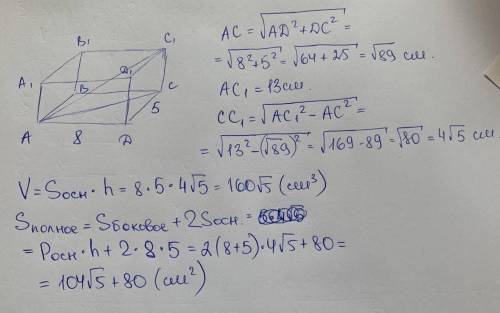 B₁ C₁
A₁ D₁
B C
5
A 8 D
AC = √(AD² + DC²) =
= √(8² + 5²) = √(64 + 25) = √89 см.
AC₁ = 13 см.
CC₁ = √(AC₁² - AC²) =
= √(13² - (√89)²) = √(169 - 89) = √80 = 4√5 см
V = Sосн · h = 8 · 5 · 4√5 = 160√5 (см³)
Sполное = Sбоковое + 2Sосн. =
= Pосн · h + 2 · 8 · 5 = 2(8+5) · 4√5 + 80 =
= 104√5 + 80 (см²)